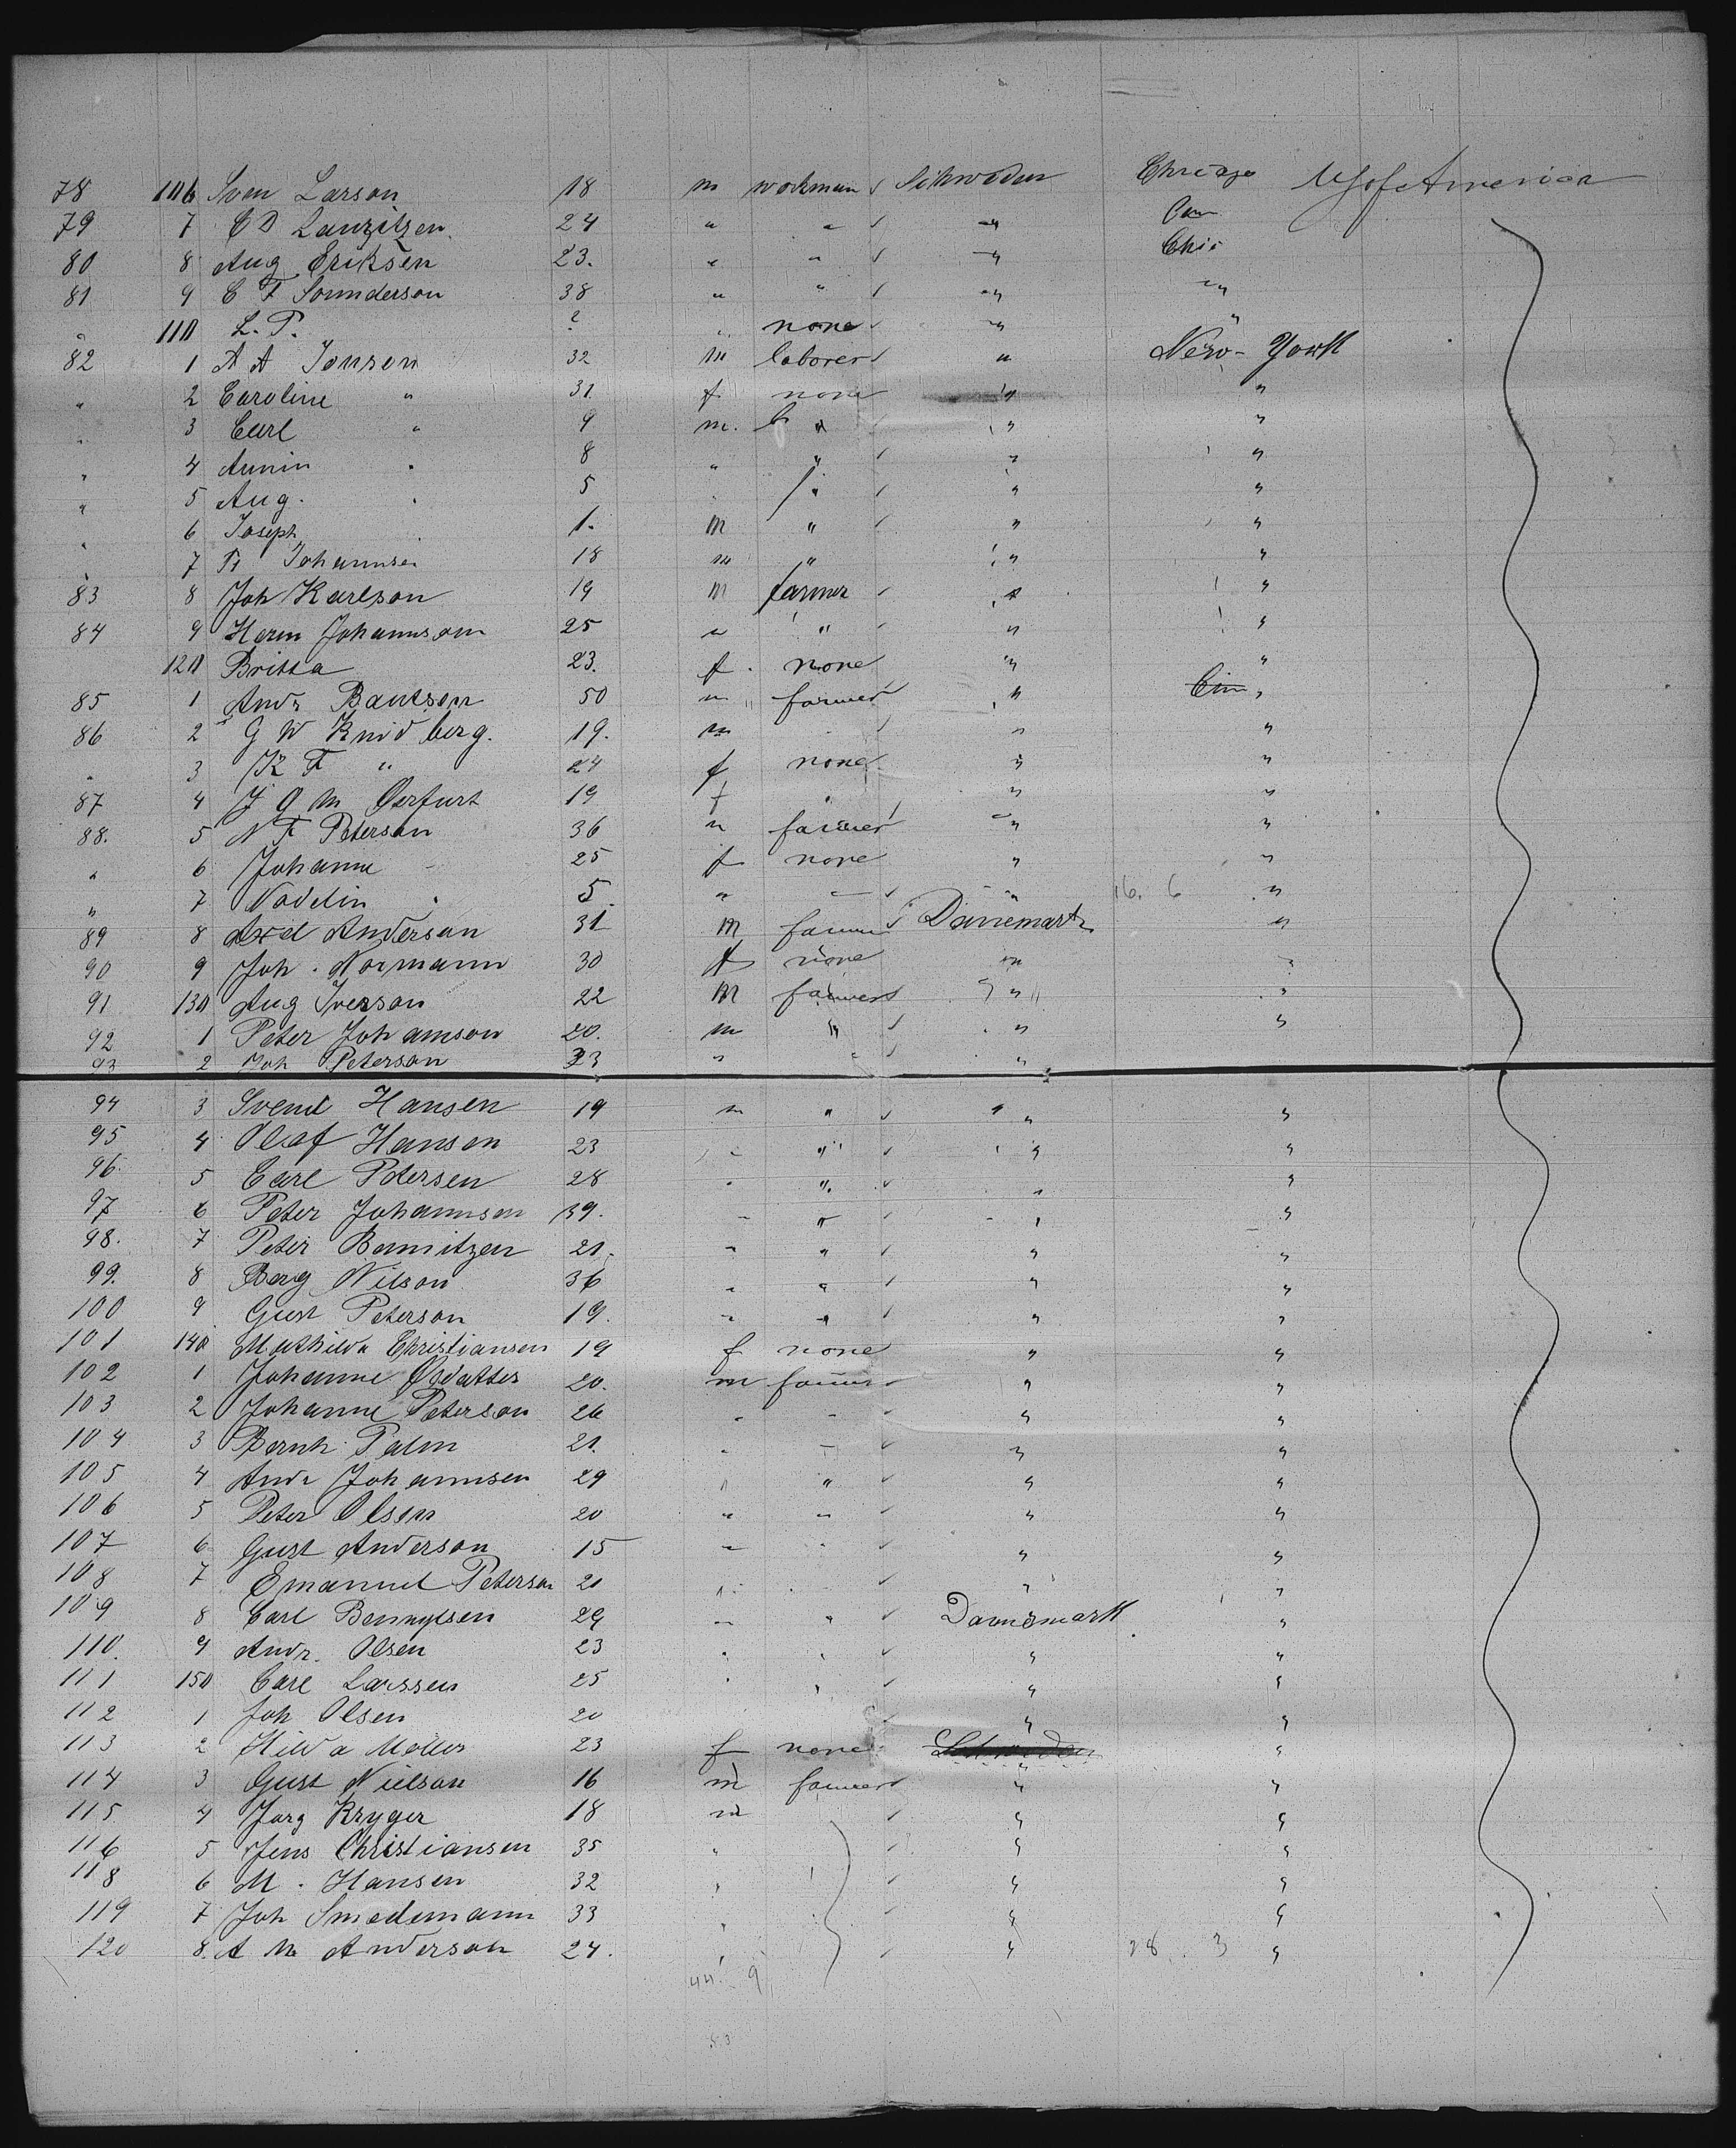 78 106 Sven Larson 18 m workman ✓ Schweden Chicago US of America
79 7 C D Lauzitzen 24 " " ✓ "
80 8 Aug Eriksen 23. " " ✓ " Chic
81 9 C F Sounderson 38 " " ✓ " "
" 110 L. P. ? " none ✓ " "
82 1 A A Jonson 32 m laborer ✓ " New-York
" 2 Caroline " 31 f none " "
" 3 Carl " 9 m. " " "
" 4 Armin " 8 " " ✓ " "
" 5 Aug. " 5 " " ✓ " "
" 6 Joseph 1. m " ✓ " "
" 7 Fr Johannsen 18 m " " "
83 8 Joh Karlson 19 m farmer ✓ " "
84 9 Herm Johannsom 25 " " ✓ " "
120 Britta 23. f. none " "
85 1 Andr Bantson 50 m " farmer " Cin "
86 2 G W Knid berg. 19. m ✓ " "
" 3 K F " 24 f none " "
87 4 J G M Gerfurt 19 f " " "
88. 5 N F Peterson 36 " farmer " "
" 6 Johanne 25 f none " "
" 7 Nodelin " 5 " " ✓ " 16. 6 "
89 8 Axel Anderson 31 m farmer Dänemark "
90 9 Joh. Normann 30 f none " "
91 130 Aug Iverson 22 m farmer " "
92 1 Peter Johannson 20. m " ✓ " "
93 2 Joh Peterson 23 " " ✓ " "
94 3 Svend Hansen 19 m " ✓ " "
95 4 Olaf Hansen 23 " " ✓ " "
96. 5 Carl Petersen 28 " " ✓ " "
97 6 Peter Johannsen 39. " " ✓ " "
98. 7 Peter Bennitzen 21. " " ✓ " "
99. 8 Berg Nilson 36 " " ✓ " "
100 9 Gust Peterson 19. " " ✓ " "
101 140 Mathilda Christiansen 19 f none " "
102 1 Johanne 20. m farmer " "
103 2 Johanne Peterson 26 " " ✓ " "
104 3 Bernh. Palm 21. " " ✓ " "
105 4 Andr Johannsen 29 " " ✓ " "
106 5 Peter Olsen 20 " " ✓ " "
107 6 Gust Anderson 15 " " ✓ " "
108 7 Emanuel Peterson 21 " " ✓ " "
109 8 Carl Bennylsen 29 " " ✓ Dannemark "
110. 9 Andr. Olsen 23 " " ✓ " "
111 150 Carl Larssen 25 " " ✓ " "
112 1 Joh Olsen 20 ✓ " "
113 2 Hilda Moller 23 f none Schweden " "
114 3 Gust Nielson 16 m farmer " "
115 4 Jorg Kryger 18 m ✓ " "
116 5 Jens Christiansen 35 " ✓ " "
118 6 M. Hansen 32 " ✓ " "
119 7 Joh Smedemann 33 " ✓ " "
120 8. A M Anderson 24. " ✓ " 28. 3 "
44. 9
53